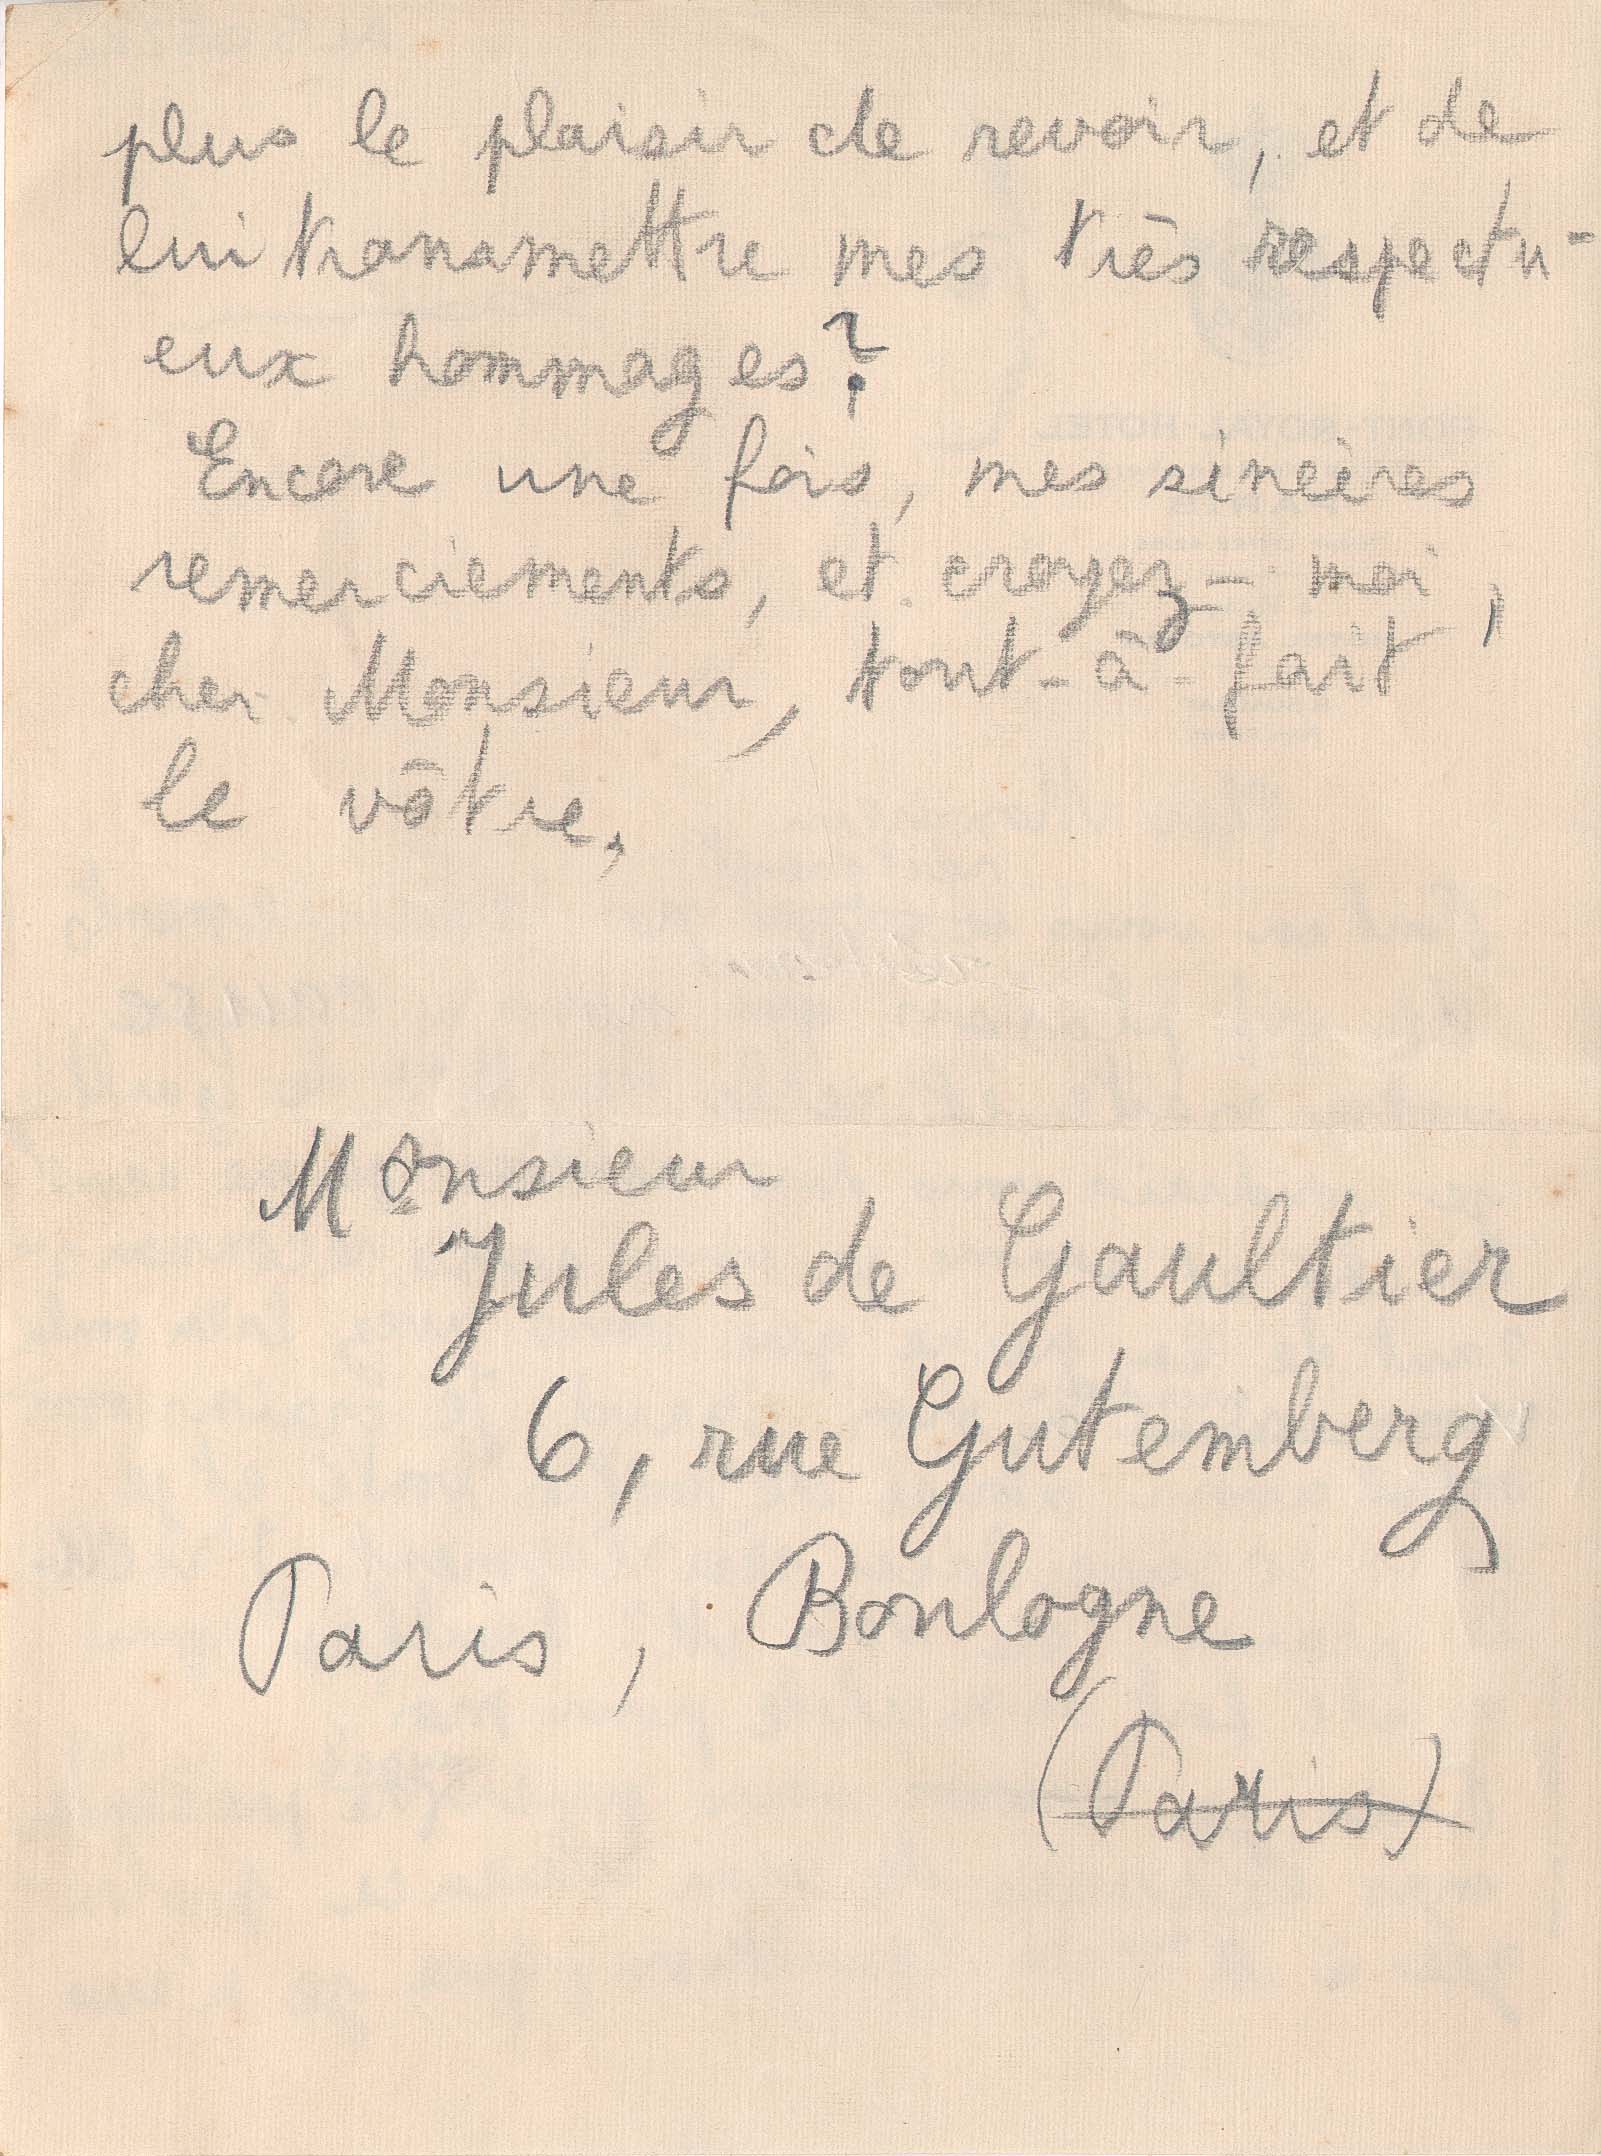 plus le plaisir de revoir, et de
lui transmettre mes très respectu-
eux hommages?
Encore une fois, mes sincères
remerciements, et croyez-moi,
cher Monsieur, tout-à-fait
le vôtre,
Monsieur
Jules de Gaultier
6, rue Gutemberg
Paris, Boulogne
(Paris)